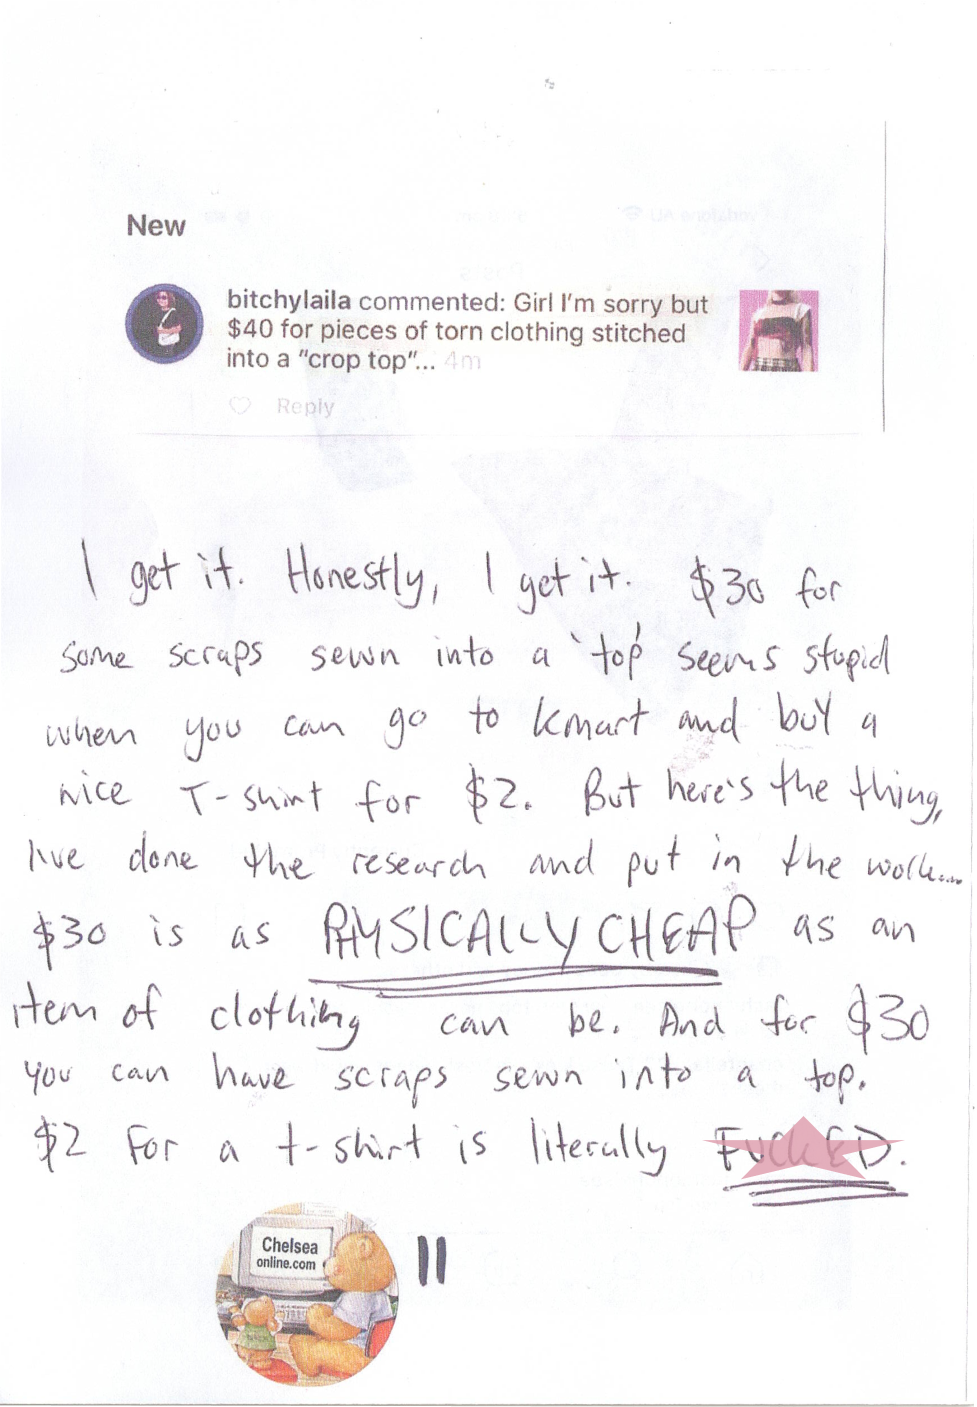 New
bitchylaila commented: Girl I'm sorry but
$40 for pieces of torn clothing stitched
into a "crop top"... 4m
Reply
I get it. Honestly, I get it. $30 for
some scraps sewn into a 'top' seems stupid
when you can go to kmart and buy a
nice T-shirt for $2. But here's the thing,
I've done the research and put in the work....
$30 is as PHYSICALLY CHEAP as an
item of clothing can be. And for $30
you can have scraps sewn into a top.
$2 For a t-shirt is literally FUCKED.
Chelsea
online.com
11